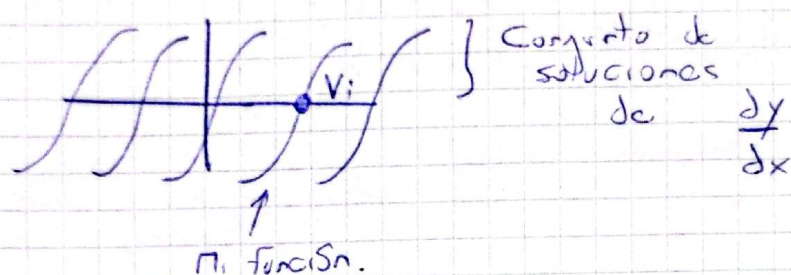 } Conjunto de
soluciones
de dy/dx
Vi
↑
Mi función.